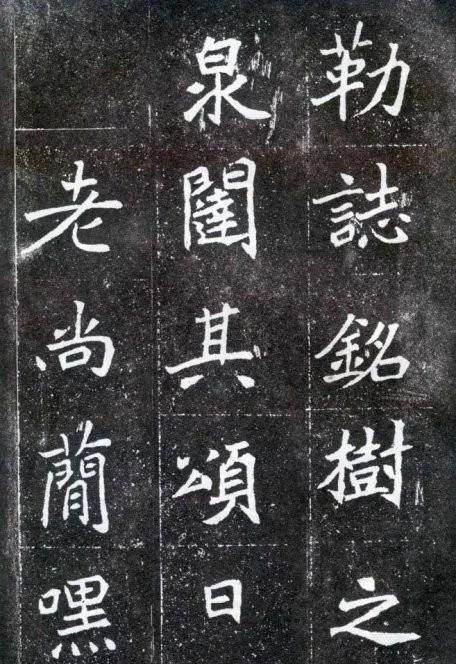 勒誌銘樹之
泉闥其頌曰
老尚蕳嘿